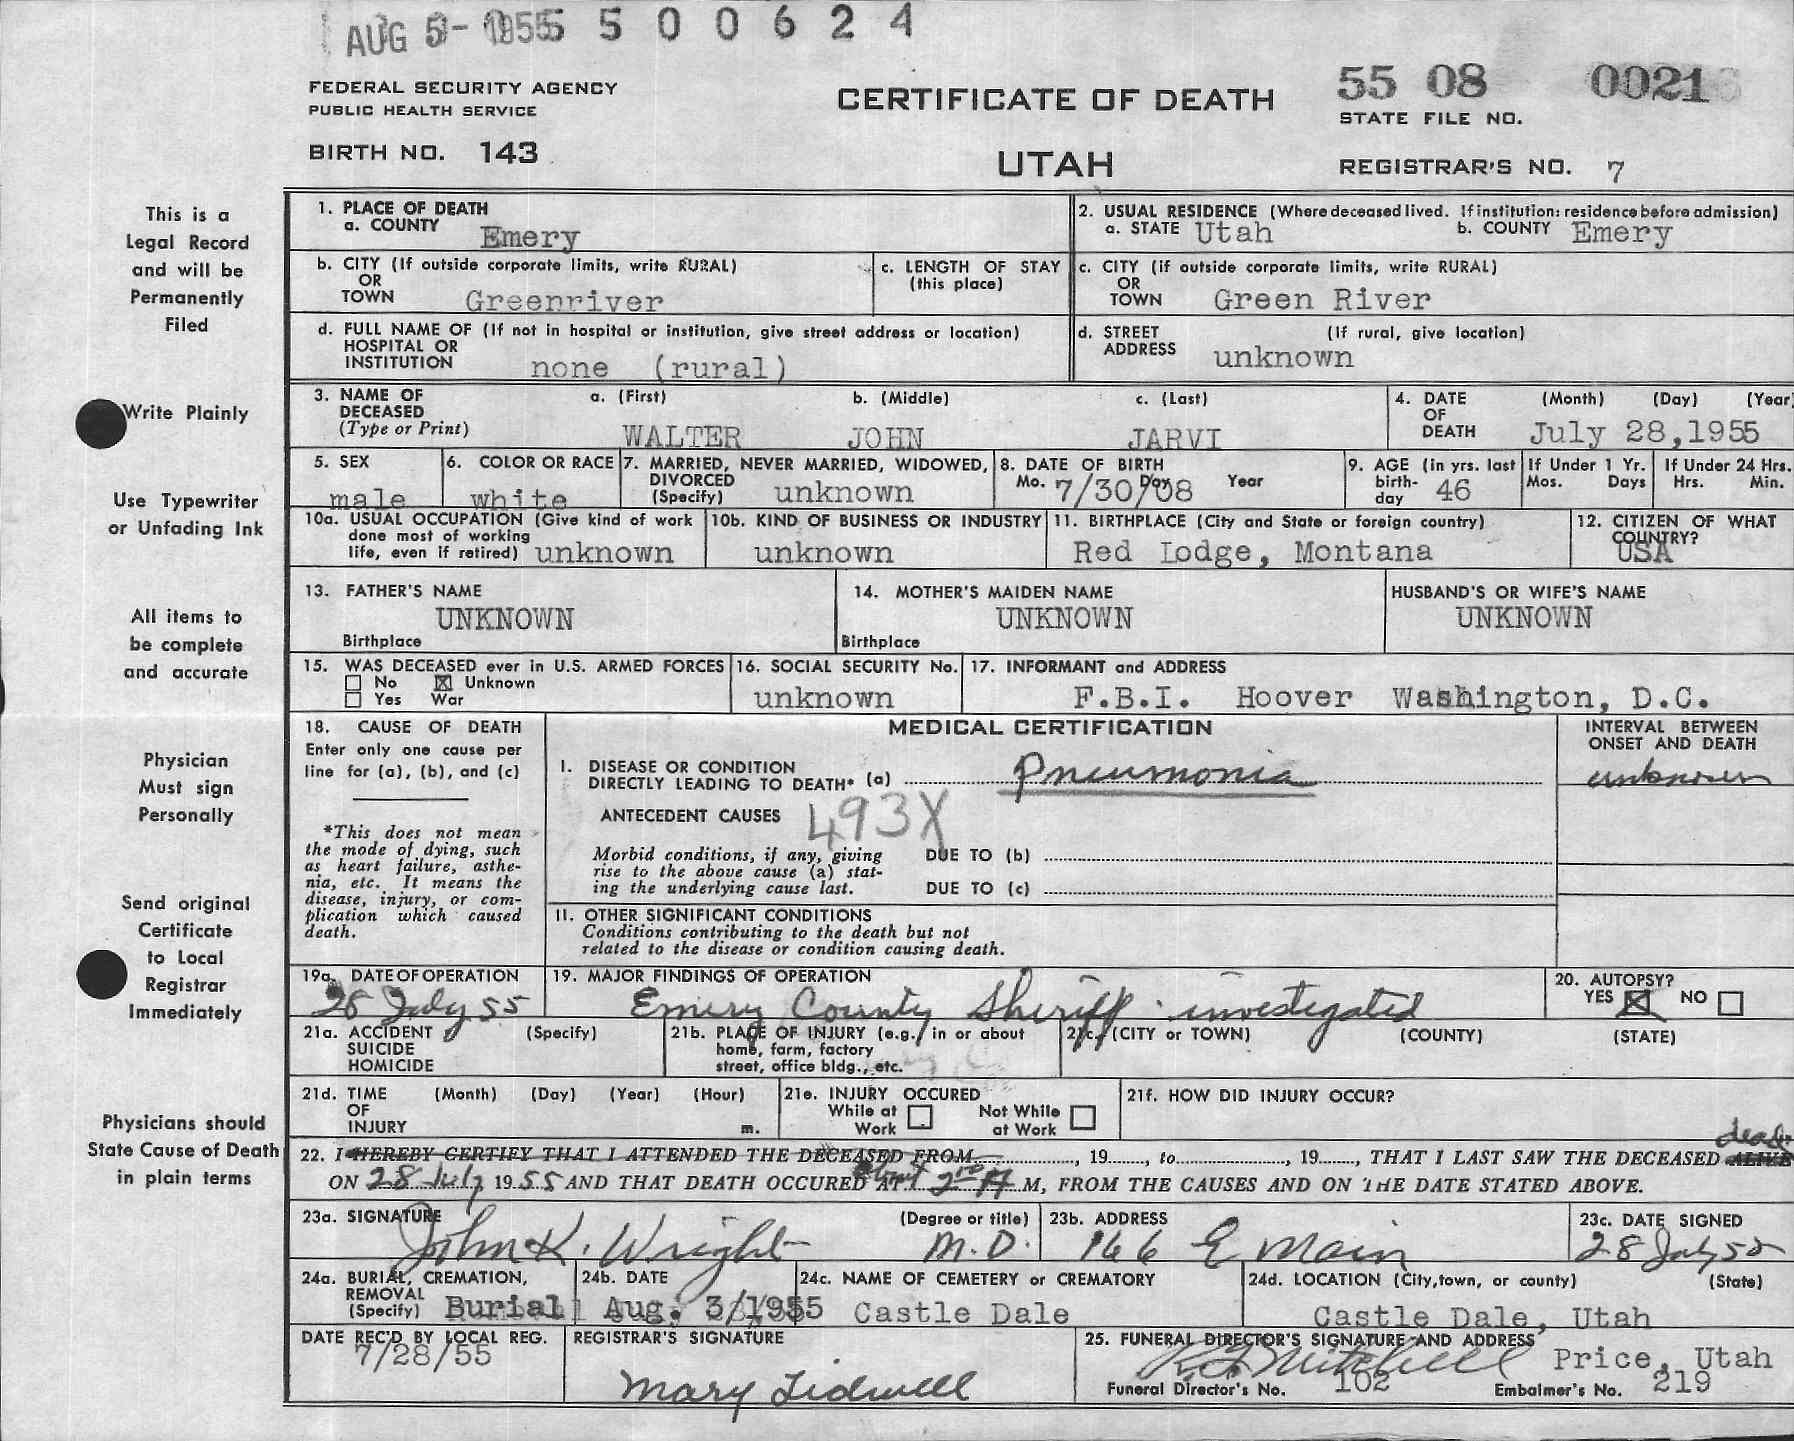 AUG 5 - 1955 5 5 0 0 6 2 4
FEDERAL SECURITY AGENCY
PUBLIC HEALTH SERVICE
BIRTH NO. 143
CERTIFICATE OF DEATH
UTAH
55 08 0021
STATE FILE NO.
REGISTRAR'S NO. 7
This is a
Legal Record
and will be
Permanently
Filed
Write Plainly
Use Typewriter
or Unfading Ink
All items to
be complete
and accurate
Physician
Must sign
Personally
Send original
Certificate
to Local
Registrar
Immediately
Physicians should
State Cause of Death
in plain terms
1. PLACE OF DEATH
a. COUNTY Emery
2. USUAL RESIDENCE (Where deceased lived. If institution: residence before admission)
a. STATE Utah b. COUNTY Emery
b. CITY (If outside corporate limits, write RURAL)
OR
TOWN Greenriver
c. LENGTH OF STAY
(this place)
c. CITY (if outside corporate limits, write RURAL)
OR
TOWN Green River
d. FULL NAME OF (If not in hospital or institution, give street address or location)
HOSPITAL OR
INSTITUTION none (rural)
d. STREET (If rural, give location)
ADDRESS unknown
3. NAME OF DECEASED (Type or Print)
a. (First) b. (Middle) c. (Last)
WALTER JOHN JARVI
4. DATE OF DEATH (Month) (Day) (Year)
July 28,1955
5. SEX
male
6. COLOR OR RACE
white
7. MARRIED, NEVER MARRIED, WIDOWED,
DIVORCED
(Specify) unknown
8. DATE OF BIRTH
Mo. Day Year
7/30/08
9. AGE (in yrs. last
birth-
day 46
If Under 1 Yr.
Mos. Days
If Under 24 Hrs.
Hrs. Min.
10a. USUAL OCCUPATION (Give kind of work
done most of working
life, even if retired) unknown
10b. KIND OF BUSINESS OR INDUSTRY
unknown
11. BIRTHPLACE (City and State or foreign country)
Red Lodge, Montana
12. CITIZEN OF WHAT
COUNTRY?
USA
13. FATHER'S NAME
UNKNOWN
Birthplace
14. MOTHER'S MAIDEN NAME
UNKNOWN
Birthplace
HUSBAND'S OR WIFE'S NAME
UNKNOWN
15. WAS DECEASED ever in U.S. ARMED FORCES
No X Unknown
Yes War
16. SOCIAL SECURITY No.
unknown
17. INFORMANT and ADDRESS
F.B.I. Hoover Washington, D.C.
18. CAUSE OF DEATH
Enter only one cause per
line for (a), (b), and (c)
*This does not mean
the mode of dying, such
as heart failure, asthe-
nia, etc. It means the
disease, injury, or com-
plication which caused
death.
MEDICAL CERTIFICATION
INTERVAL BETWEEN
ONSET AND DEATH
I. DISEASE OR CONDITION
DIRECTLY LEADING TO DEATH* (a) Pneumonia
unknown
ANTECEDENT CAUSES 493X
Morbid conditions, if any, giving
rise to the above cause (a) stat-
ing the underlying cause last.
DUE TO (b)
DUE TO (c)
II. OTHER SIGNIFICANT CONDITIONS
Conditions contributing to the death but not
related to the disease or condition causing death.
19a. DATE OF OPERATION
28 July 55
19. MAJOR FINDINGS OF OPERATION
Emery County Sheriff investigated
20. AUTOPSY?
YES X NO
21a. ACCIDENT (Specify)
SUICIDE
HOMICIDE
21b. PLACE OF INJURY (e.g., in or about
home, farm, factory
street, office bldg., etc.
21c. (CITY or TOWN) (COUNTY) (STATE)
21d. TIME (Month) (Day) (Year) (Hour)
OF
INJURY m.
21e. INJURY OCCURED
While at Work Not While at Work
21f. HOW DID INJURY OCCUR?
22. I HEREBY CERTIFY THAT I ATTENDED THE DECEASED FROM , 19 , to , 19 , THAT I LAST SAW THE DECEASED ALIVE dead
ON 28 July 1955 AND THAT DEATH OCCURED AT about 2 A M, FROM THE CAUSES AND ON THE DATE STATED ABOVE.
23a. SIGNATURE (Degree or title)
John K. Wright M.D.
23b. ADDRESS
166 E Main
23c. DATE SIGNED
28 July 55
24a. BURIAL, CREMATION,
REMOVAL
(Specify) Burial
24b. DATE
Aug. 3/1955
24c. NAME OF CEMETERY or CREMATORY
Castle Dale
24d. LOCATION (City,town, or county) (State)
Castle Dale, Utah
DATE REC'D BY LOCAL REG.
7/28/55
REGISTRAR'S SIGNATURE
Mary Tidwell
25. FUNERAL DIRECTOR'S SIGNATURE AND ADDRESS
Mitchell Price, Utah
Funeral Director's No. 102 Embalmer's No. 219